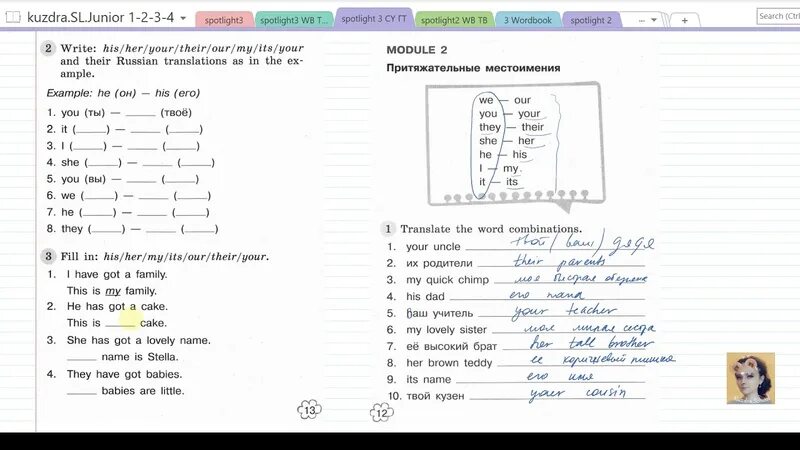 kuzdra.SL.Junior 1-2-3-4
spotlight3
spotlight3 WB T...
spotlight 3 СУ ГГ
spotlight2 WB TB
3 Wordbook
spotlight 2
...
+
Search (Ctrl
2 Write: his/her/your/their/our/my/its/your
and their Russian translations as in the ex-
ample.
Example: he (он) — his (его)
1. you (ты) — ____ (твоё)
2. it (____) — ____ (____)
3. I (____) — ____ (____)
4. she (____) — ____ (____)
5. you (вы) — ____ (____)
6. we (____) — ____ (____)
7. he (____) — ____ (____)
8. they (____) — ____ (____)
3 Fill in: his/her/my/its/our/their/your.
1. I have got a family.
This is my family.
2. He has got a cake.
This is ____ cake.
3. She has got a lovely name.
____ name is Stella.
4. They have got babies.
____ babies are little.
13
MODULE 2
Притяжательные местоимения
we — our
you — your
they — their
she — her
he — his
I — my
it — its
1 Translate the word combinations.
1. your uncle твой/ваш/дядя
2. их родители their parents
3. my quick chimp моя быстрая
4. his dad его папа
5. ваш учитель your teacher
6. my lovely sister моя милая сестра
7. её высокий брат her tall brother
8. her brown teddy ее коричневый мишка
9. its name его имя
10. твой кузен your cousin
12